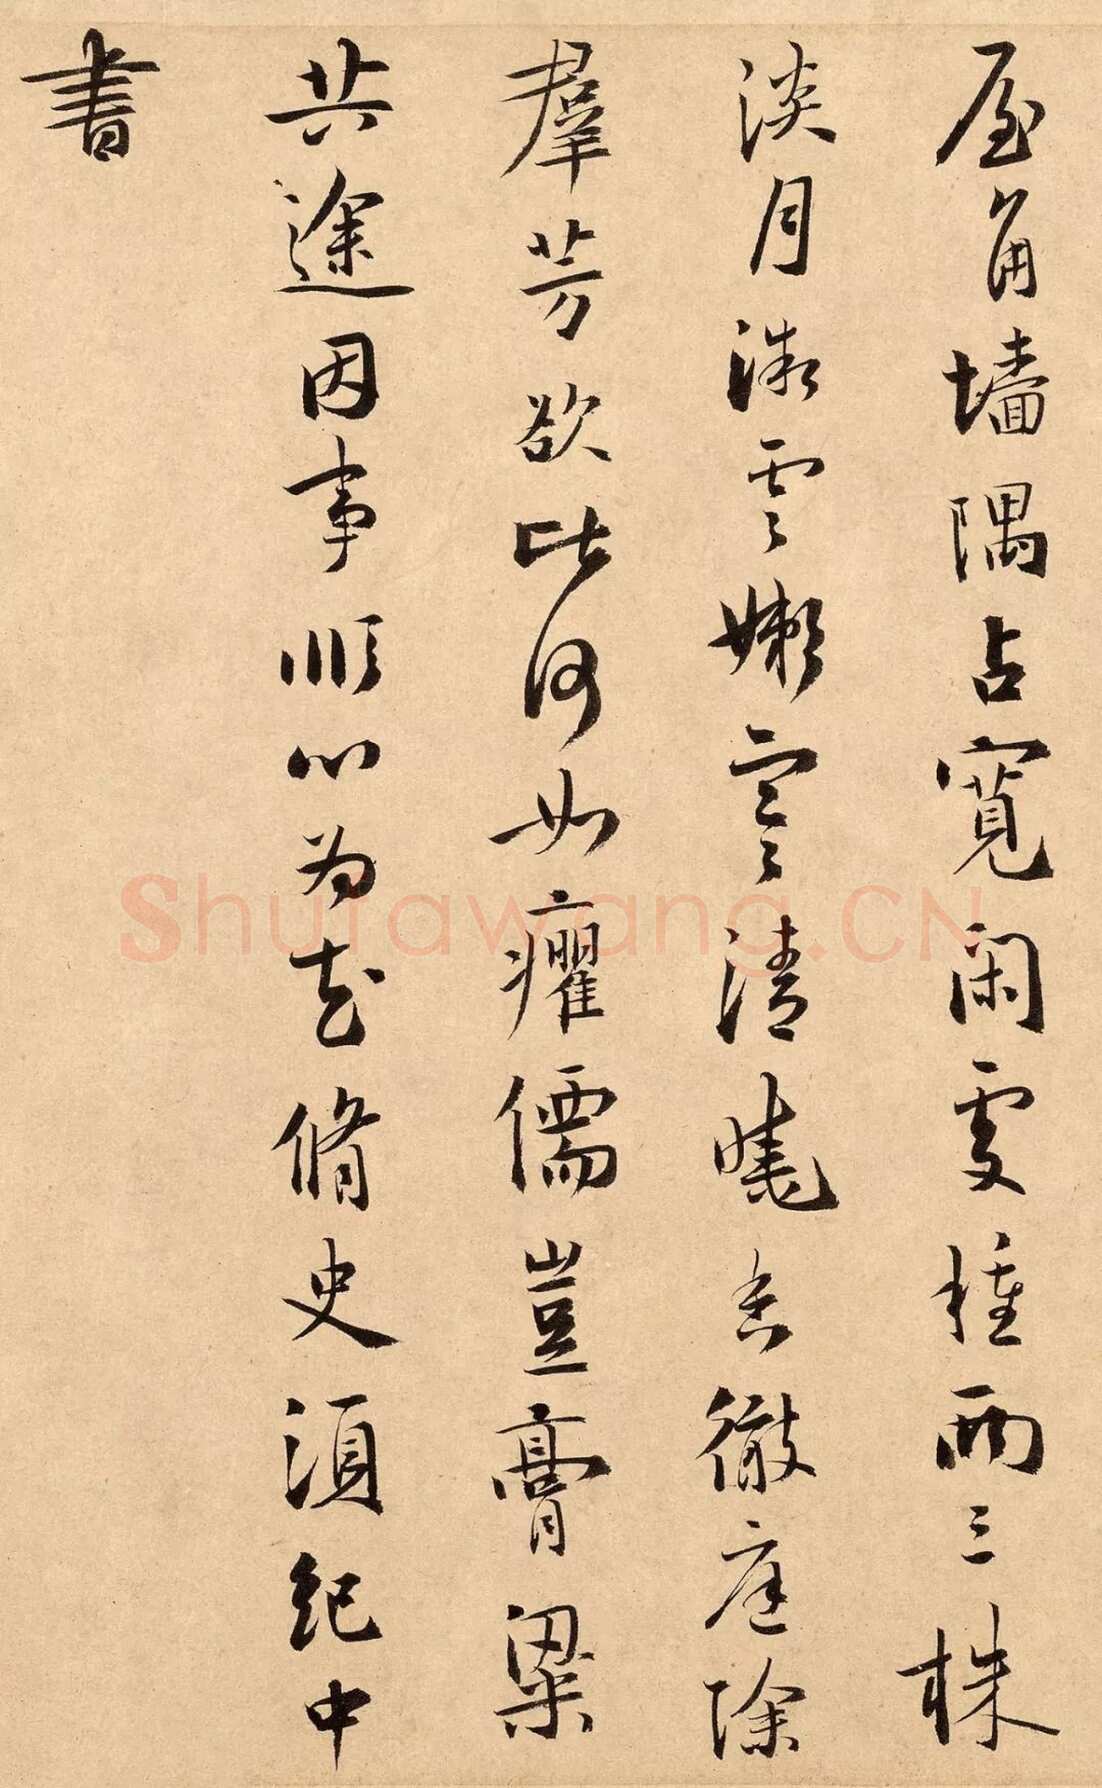 屋角墻隅占寬閑處種兩三株
淡月微雲嫩寒清曉香徹庭除
羣芳欲比何如癯儒豈膏粱
共途因事順心为花脩史須紀中
書
Shufawang.CN